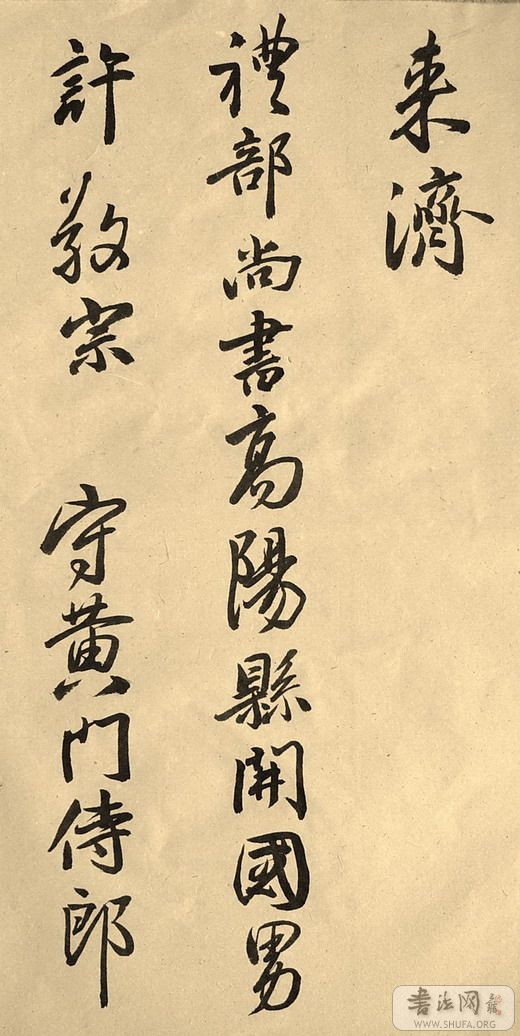 来濟
禮部尚書高陽縣開國男
許敬宗 守黄門侍郎
書法网
WWW.SHUFA.ORG